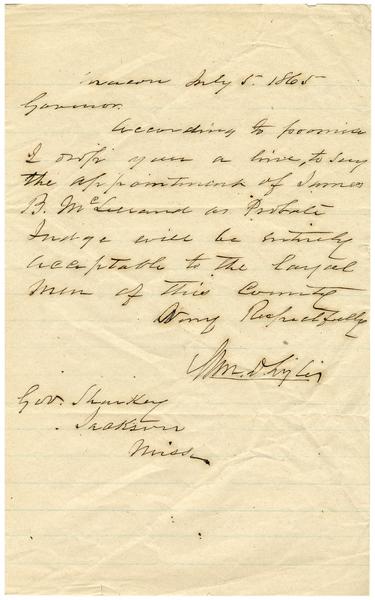 Macon July 5. 1865
Governor.
According to promise
I drop you a line, to say
the appointment of James
B. McLelland as Probate
Judge will be entirely
acceptable to the loyal
men of this County
Very Respectfully
Wm. D.
Gov. Sharkey
Jackson
Miss